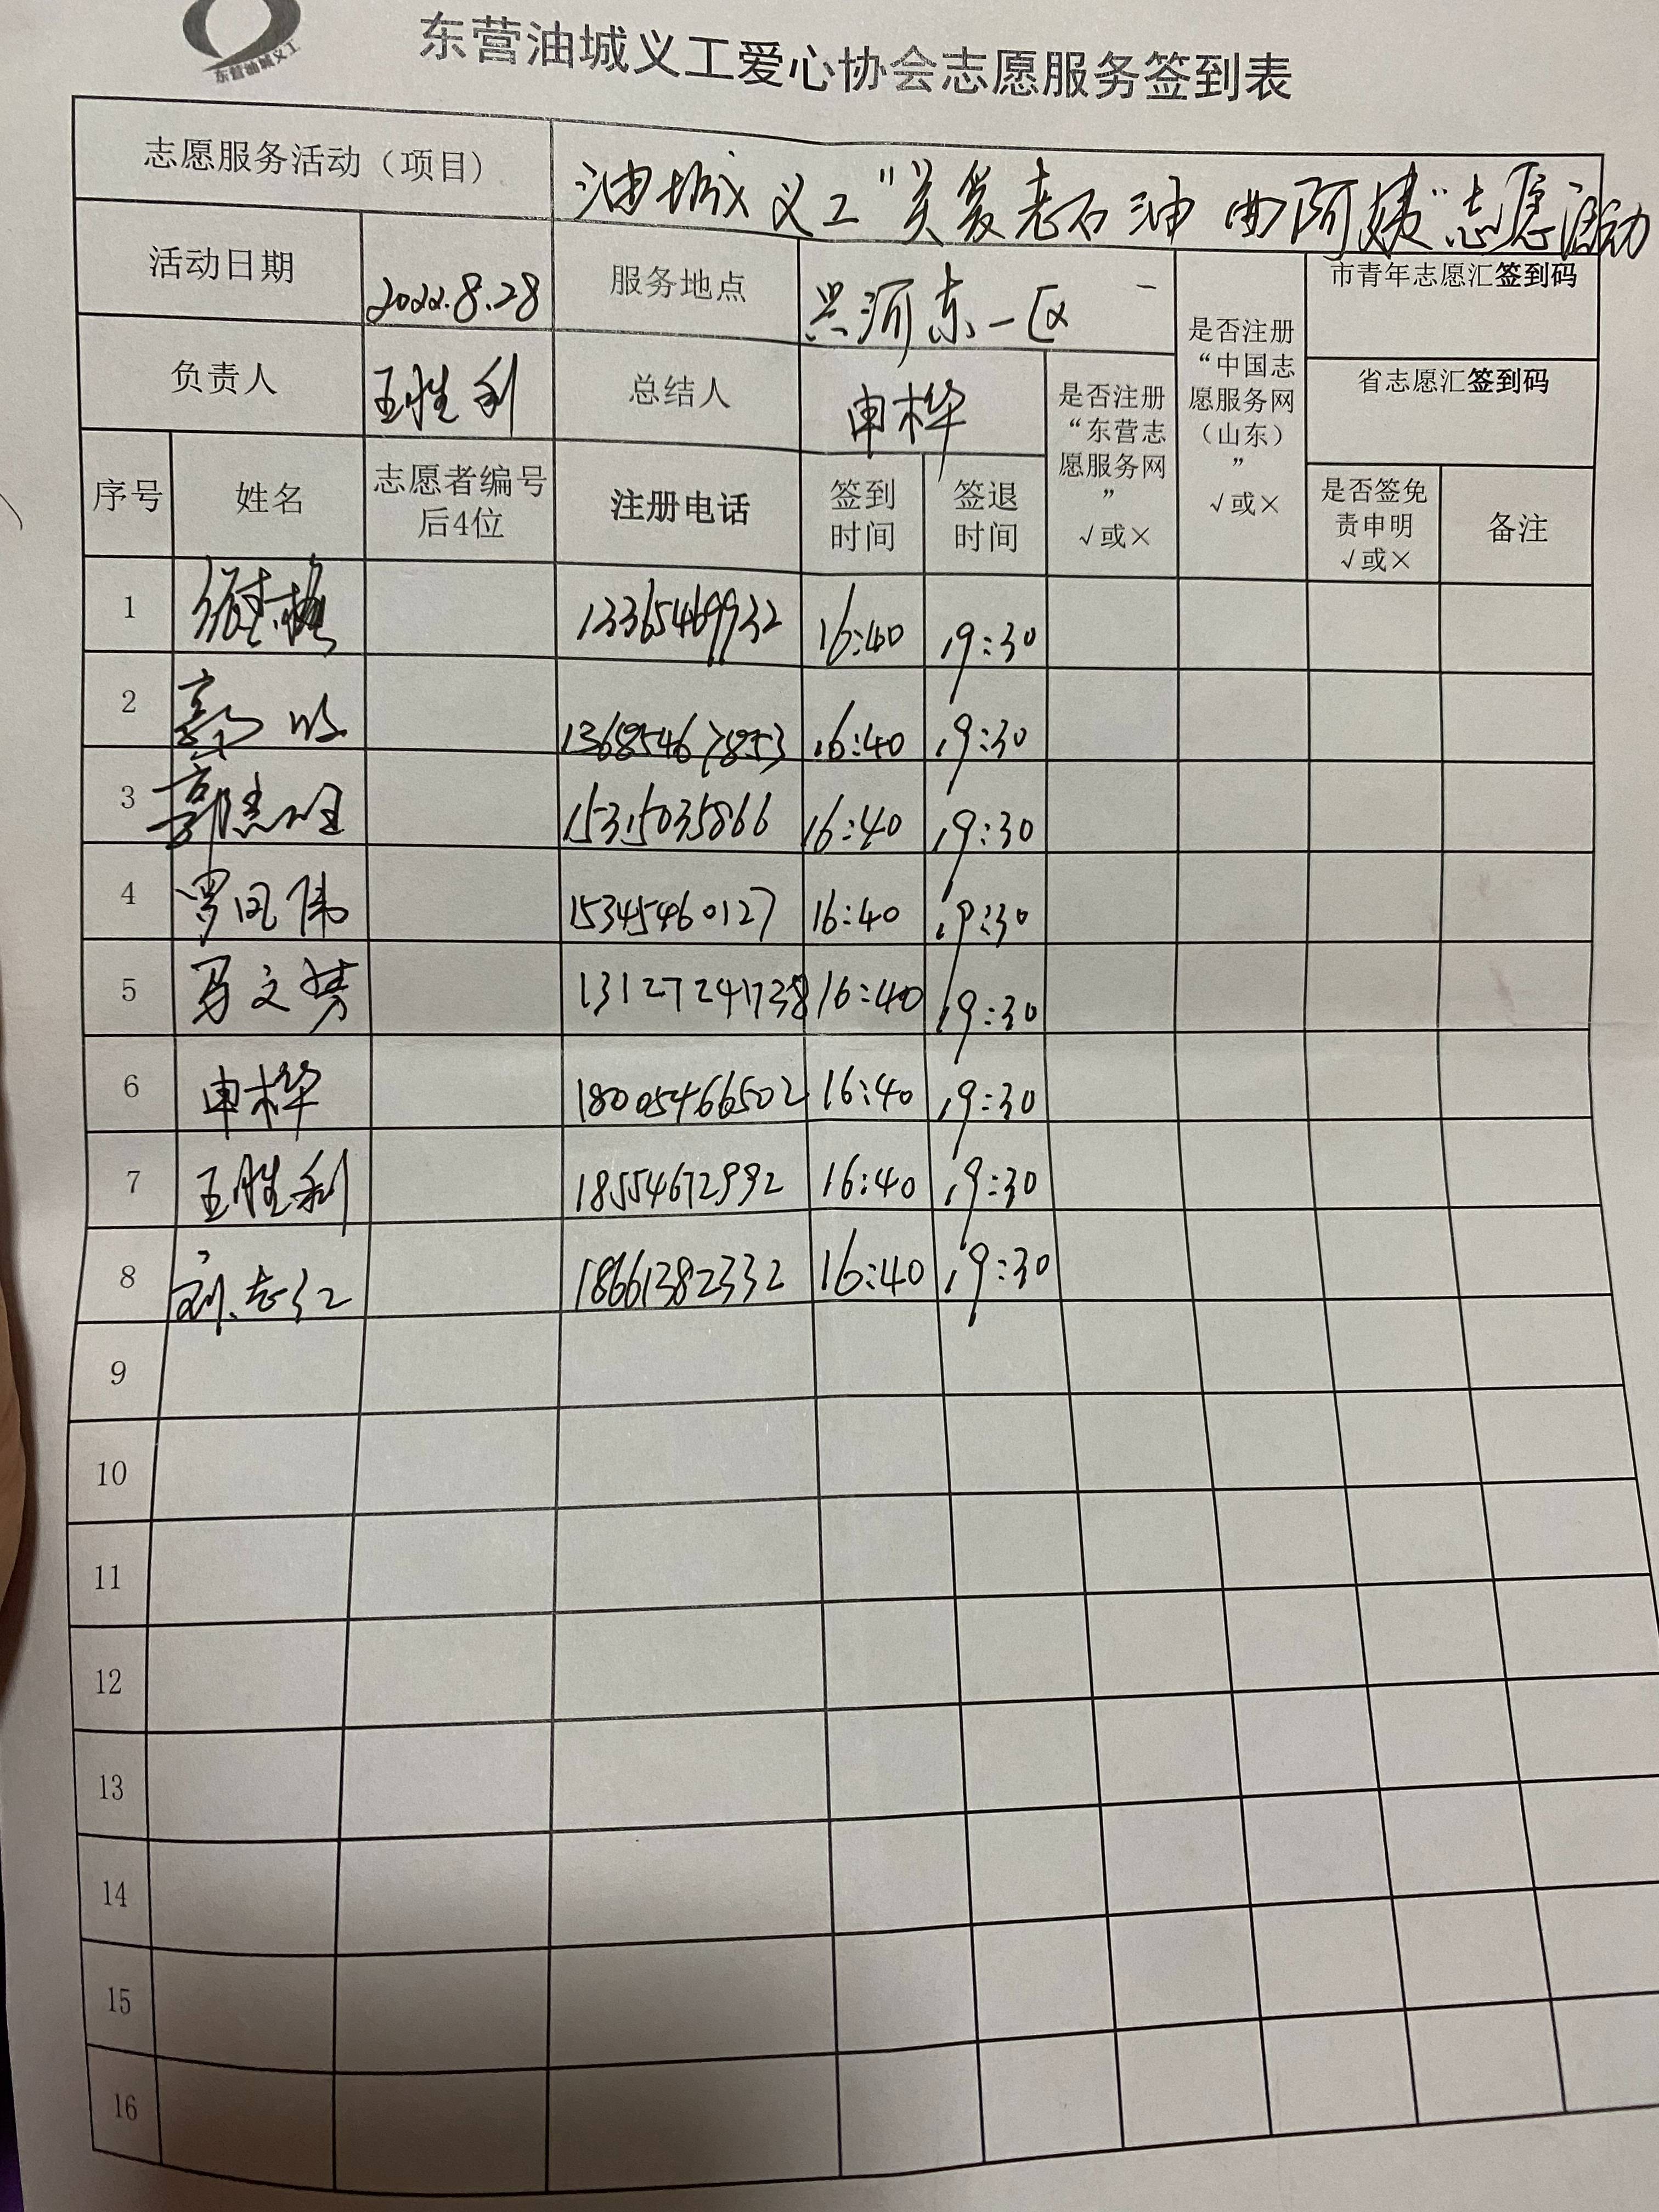 东营油城义工
东营油城义工爱心协会志愿服务签到表
志愿服务活动（项目） 油城义工"关爱老石油曲阿姨"志愿活动
活动日期 2022.8.28 服务地点 兴河东一区
负责人 王胜利 总结人 申桦
是否注册“东营志愿服务网” √或×
是否注册“中国志愿服务网（山东）” √或×
市青年志愿汇签到码
省志愿汇签到码
序号 姓名 志愿者编号后4位 注册电话 签到时间 签退时间 是否签免责申明 √或× 备注
1 13365469932 16:40 19:30
2 郭 13685467853 16:40 19:30
3 郭 15315035866 16:40 19:30
4 罗凤伟 15345460127 16:40 19:30
5 马文 13127241738 16:40 19:30
6 申桦 18005466502 16:40 19:30
7 王胜利 18554672992 16:40 19:30
8 刘志江 18661382332 16:40 19:30
9
10
11
12
13
14
15
16